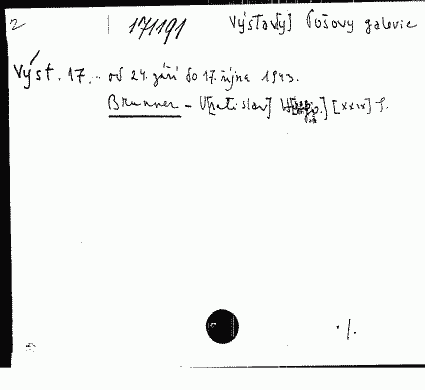 2 171191 Výstavy] Pošovy galerie
Výst. 17. od 24. září do 17. října 1943.
Brunner - V[ratislav] [xxix] s.
·/.